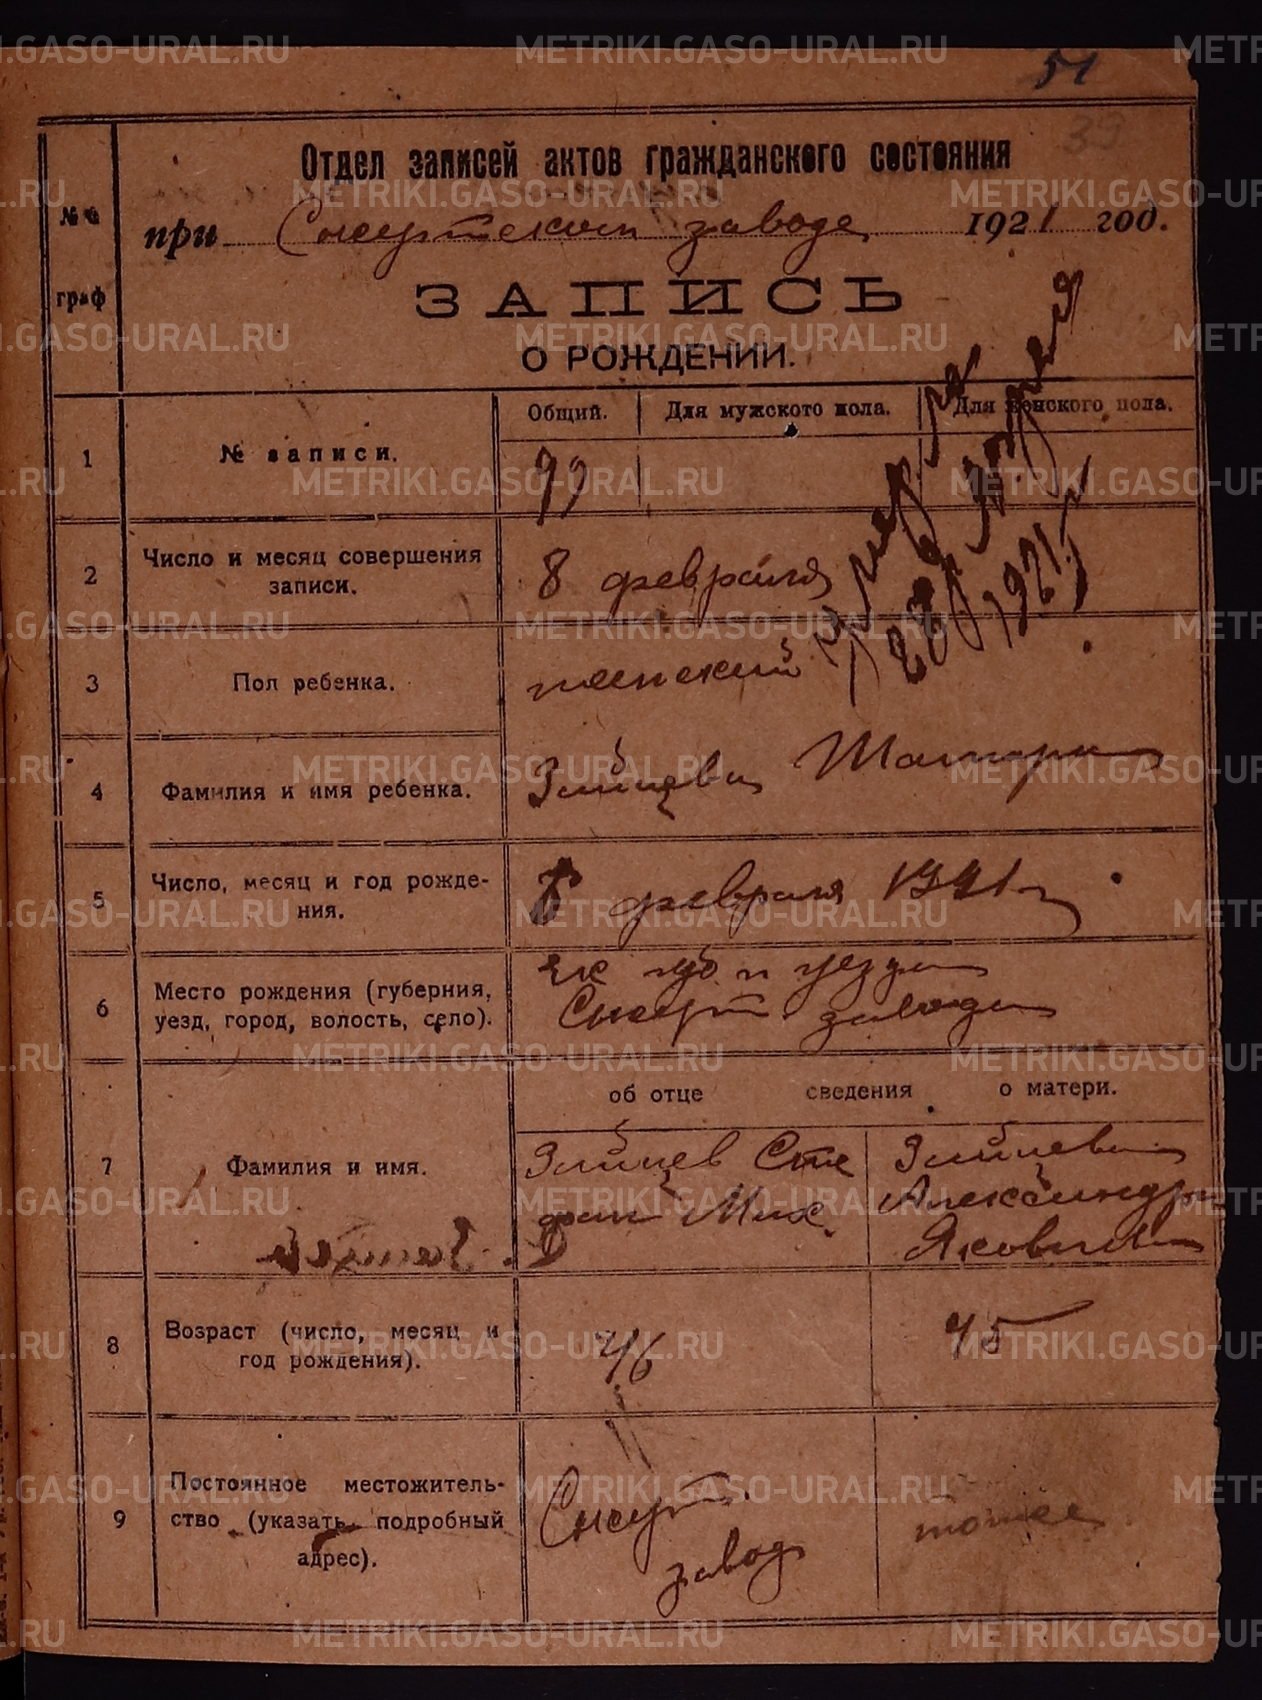 METRIKI.GASO-URAL.RU
51
39
Отдел записей актов гражданского состояния
№ №
граф
при Сысертском заводе 1921 год.
ЗАПИСЬ
О РОЖДЕНИИ.
1
№ записи.
Общий.
Для мужского пола.
Для женского пола.
умерла
1921 г.
2
Число и месяц совершения
записи.
8 февраля
3
Пол ребенка.
женский
4
Фамилия и имя ребенка.
Зайцева
5
Число, месяц и год рожде-
ния.
февраля 1921 г
6
Место рождения (губерния,
уезд, город, волость, село).
Ек губ и уезда
Сысерт. завода
об отце сведения о матери.
7
Фамилия и имя.
Зайцев Сте
фан Мих.
Зайцева
Александра
Яковлев
8
Возраст (число, месяц и
год рождения).
46
45
9
Постоянное местожитель-
ство (указать подробный
адрес).
Сысерт.
завод
тоже